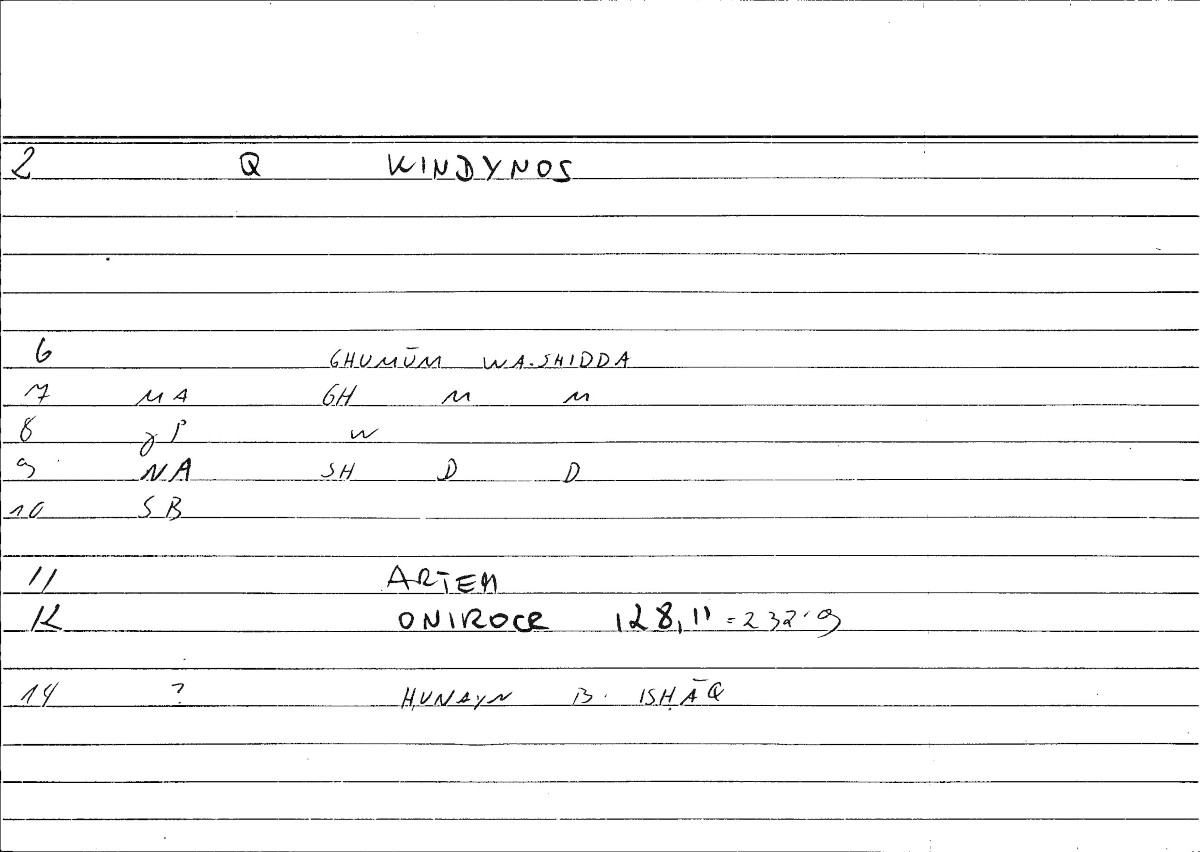 2 Q KINDYNOS
6 GHUMŪM WA-SHIDDA
7 MA GH M M
8 γP W
9 NA SH D D
10 SB
11 ARTEM
12 ONIROCR 128,11 = 232.9
14 ? ḤUNAYN B. ISḤĀQ